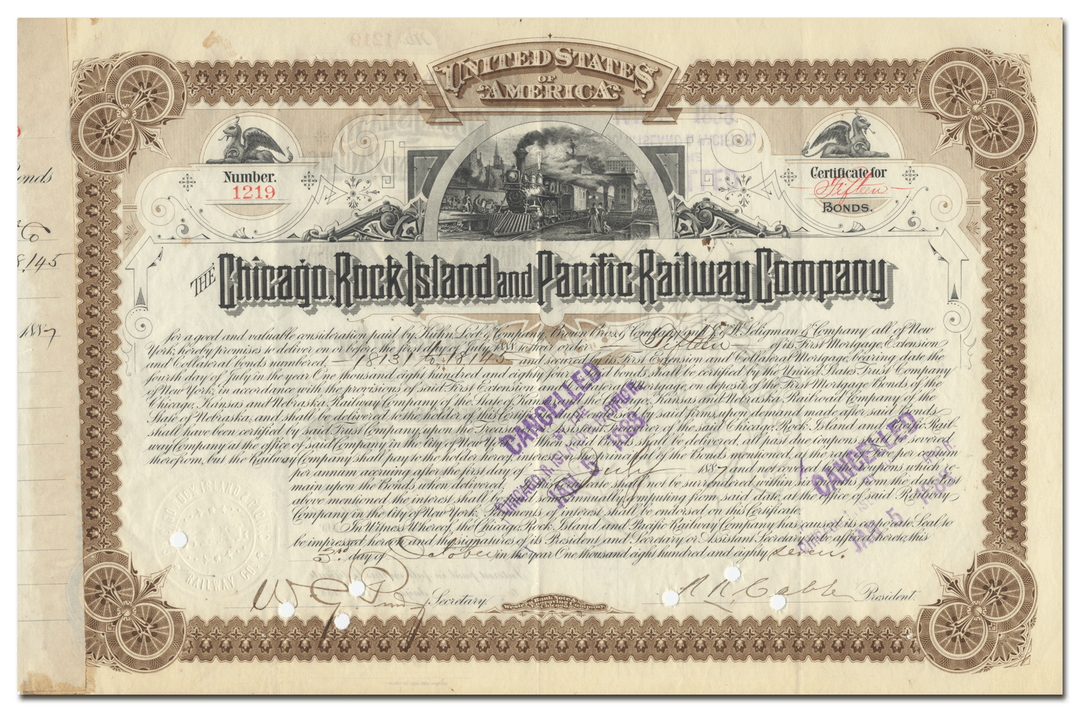 No. 1219
UNITED STATES
OF
AMERICA
Number.
1219
Certificate for
Fifteen
BONDS.
onds
Co
8145
1887
THE Chicago, Rock Island and Pacific Railway Company
for a good and valuable consideration paid by Kuhn Loeb & Company, Brown Bros & Company and J. & W. Seligman & Company all of New
York, hereby promises to deliver on or before the first day of July, to their order Fifteen of its First Mortgage, Extension
and Collateral Bonds numbered 18131 to 18145 and secured by its First Extension and Collateral Mortgage, bearing date the
fourth day of July in the year One thousand eight hundred and eighty four. Said bonds shall be certified by the United States Trust Company
of New York, in accordance with the provisions of said First Extension and Collateral Mortgage, on deposit of the First Mortgage Bonds of the
Chicago, Kansas and Nebraska Railway Company of the State of Kansas and the Chicago, Kansas and Nebraska Railroad Company of the
State of Nebraska, and shall be delivered to the holder of this by said firms, upon demand made after said Bonds
shall have been certified by said Trust Company, upon the Treasurer or Assistant Treasurer of the said Chicago, Rock Island and Pacific Rail-
way Company at the office of said Company in the City of New York. If said Bonds shall be delivered, all past due coupons shall be severed
therefrom, but the Railway Company shall pay to the holder hereof interest on the principal of the Bonds mentioned, at the rate of five per centum
per annum accruing after the first day of July 1887 and not covered by coupons which re-
main upon the Bonds when delivered. shall not be surrendered within six months from the date first
above mentioned the interest shall be paid semi-annually computing from said date, at the office of said Railway
Company in the City of New York. Payments of interest shall be endorsed on this Certificate.
In Witness Whereof, the Chicago, Rock Island and Pacific Railway Company has caused its corporate Seal to
be impressed hereon and the signatures of its President and Secretary or Assistant Secretary to be affixed hereto, this
3rd day of October in the year One thousand eight hundred and eighty seven.
CANCELLED
CHICAGO, R. ISLAND & PACIFIC
JAN 5 1888
CANCELLED
JAN 5
RAILWAY CO.
Secretary.
Western Bank Note & Engraving Company, Chicago
R. R. Cable President.